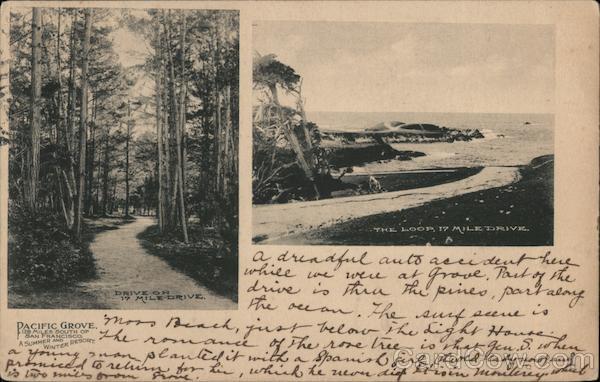 DRIVE ON
17 MILE DRIVE.
THE LOOP, 17 MILE DRIVE.
PACIFIC GROVE,
128 MILES SOUTH OF
SAN FRANCISCO,
A SUMMER AND
WINTER RESORT.
A dreadful auto accident here
while we were at Grove. Part of the
drive is thru the pines, part along
the ocean. The surf scene is
Moss Beach, just below the Light House.
The romance of the rose tree is that Gen. S. when
a young man planted it with a Spanish
promised to return for her, which he never did. Monterey
is two miles from Grove.
CardCow.com